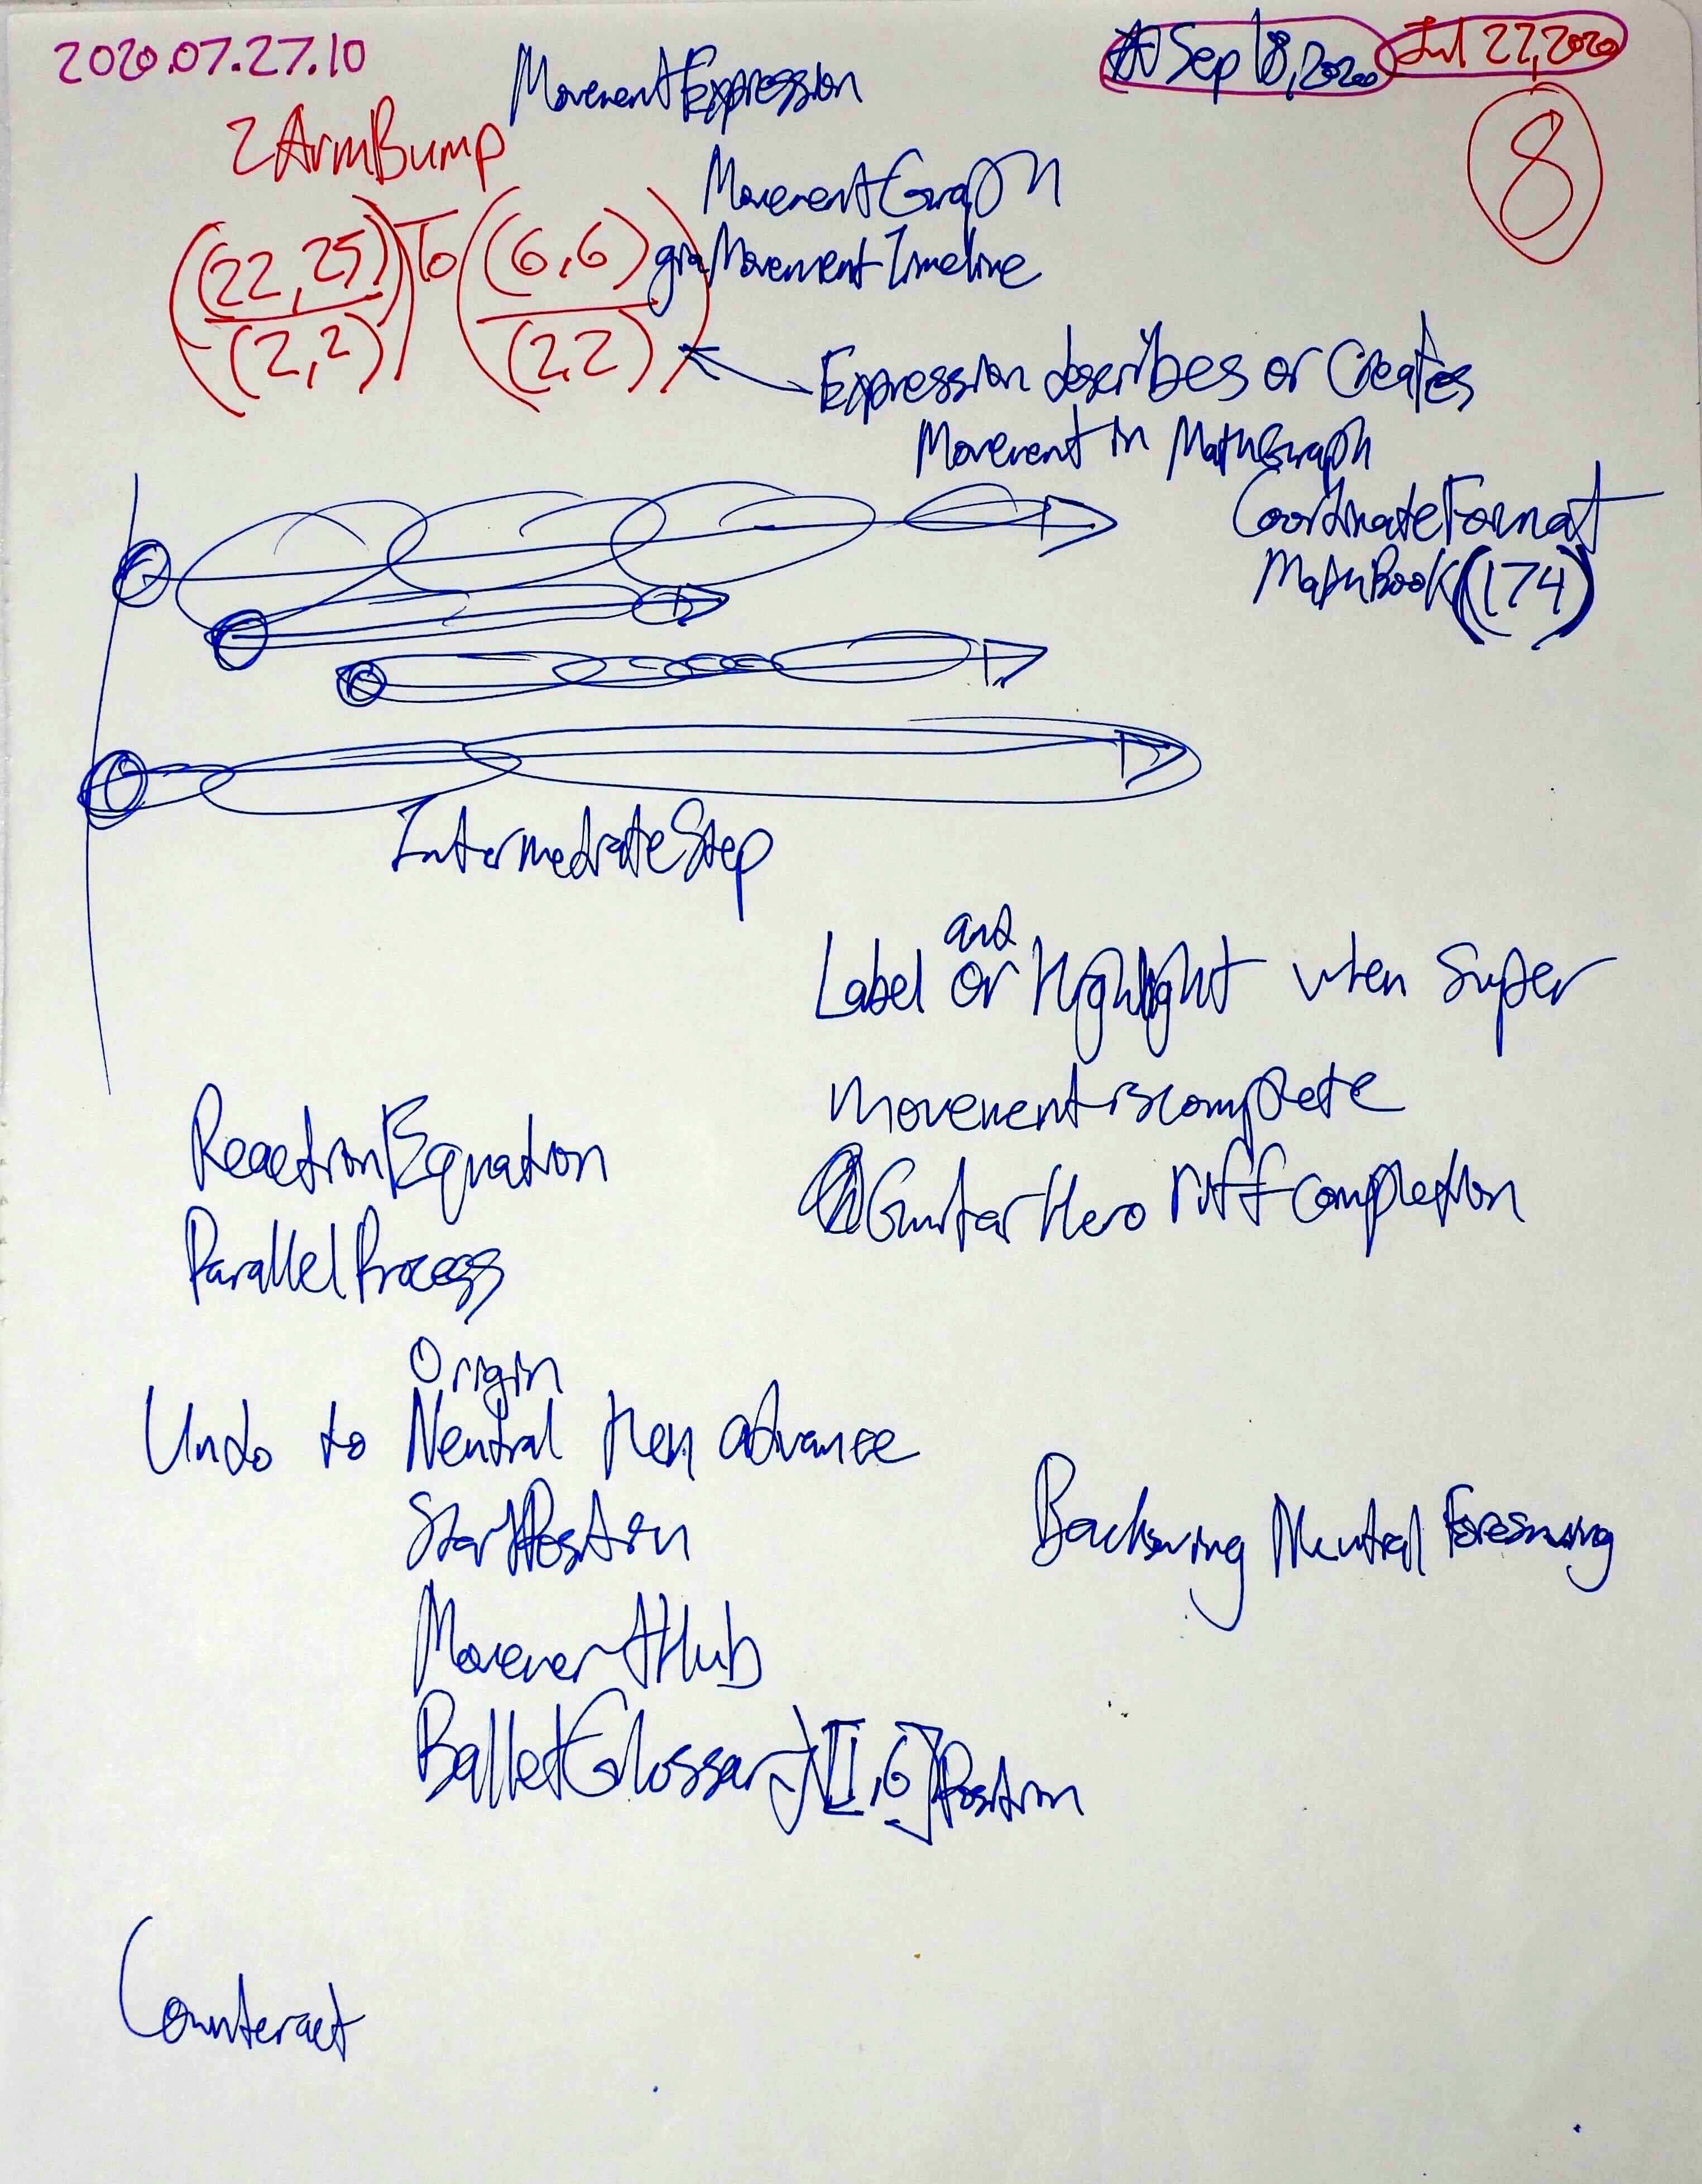 2020.07.27.10
Sep 18, 2020
Jul 27, 2020
8
MovementExpression
2ArmBump
MovementGraph
MovementTimeline
((22,25)/(2,2)) To ((6,6)/(2,2))
Expression describes or Creates
Movement in MathGraph
CoordinateFormat
MathBook(174)
IntermediateStep
and
Label or Highlight when Super
movement is complete
GuitarHero riff completion
ReactionEquation
ParallelProcess
Origin
Undo to Neutral then advance
StartPosition
MovementHub
BalletGlossary[I,6]Position
Backswing Neutral Foreswing
Counteract